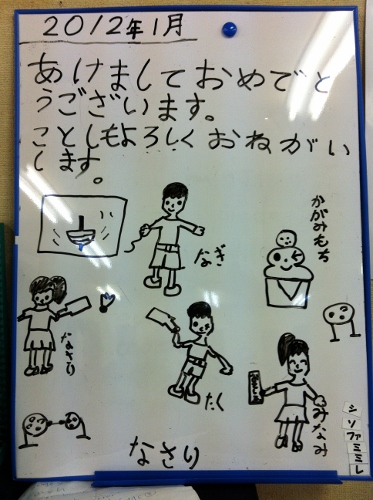 2012年1月
あけましておめでと
うございます。
ことしもよろしくおねがい
します。
かがみもち
なぎ
なさり
たく
みなみ
なさり
シソファミミレ